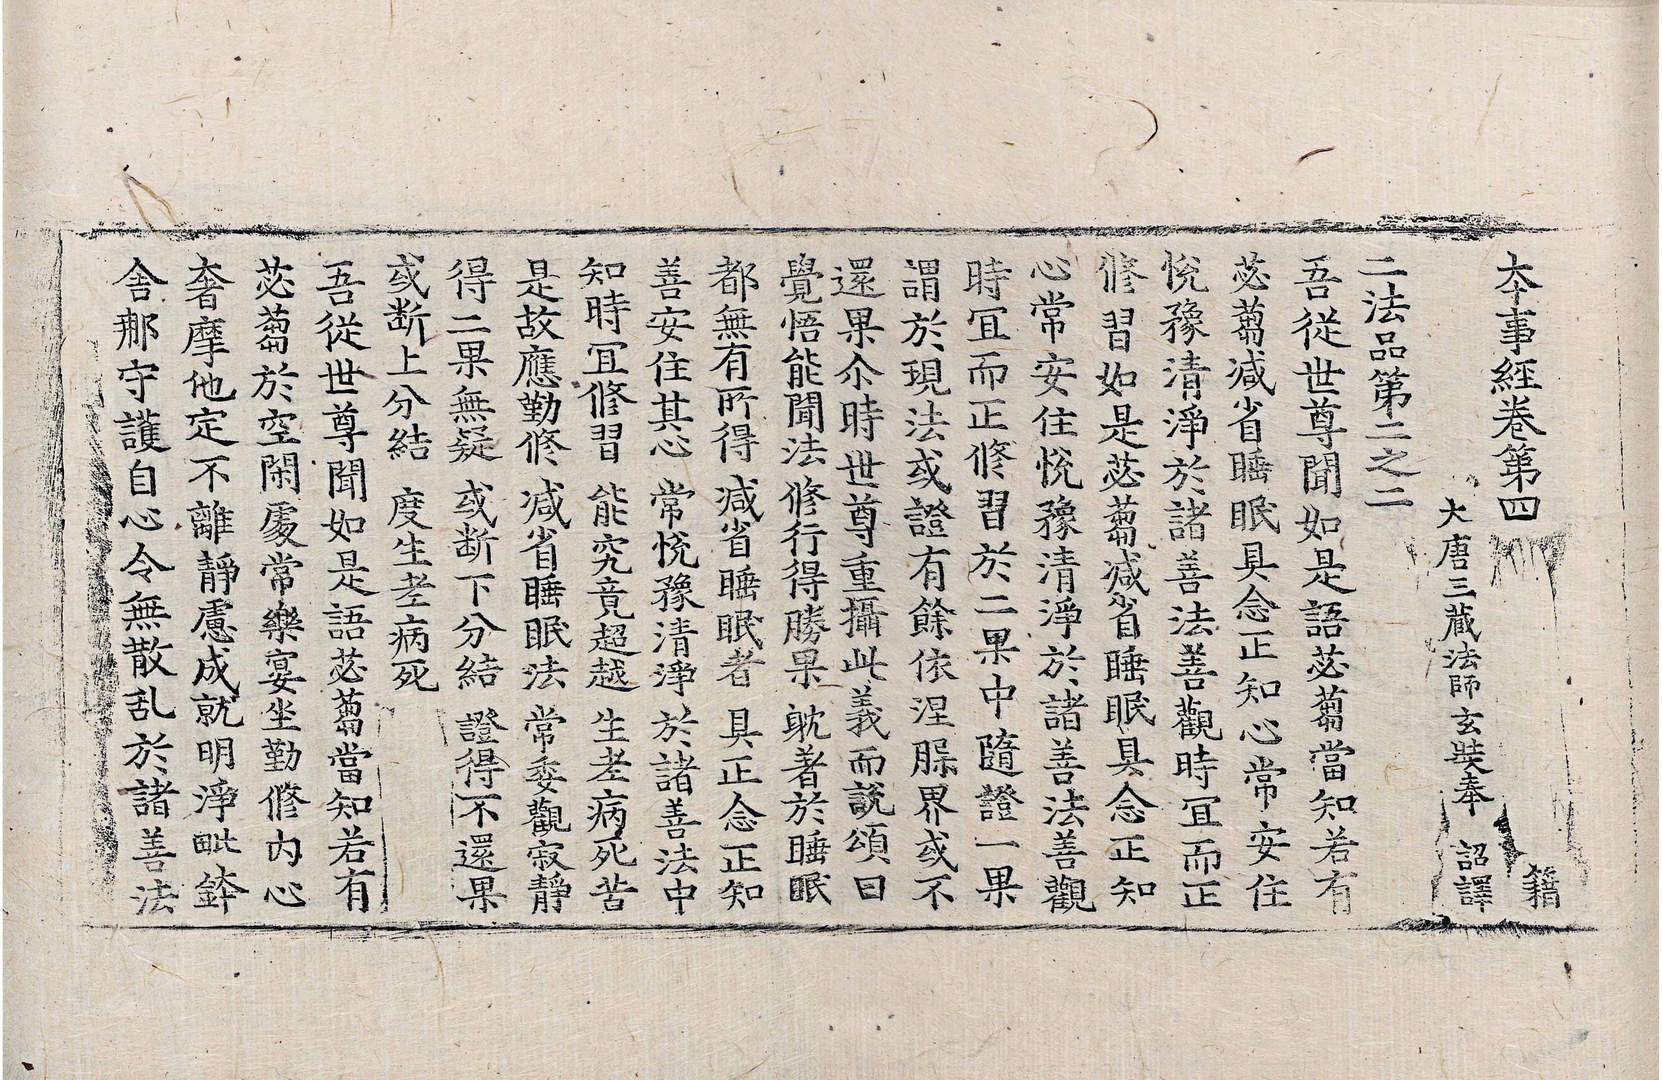 本事經卷第四 籍
大唐三藏法師玄奘奉 詔譯
二法品第二之二
吾從世尊聞如是語苾蒭當知若有
苾蒭減省睡眠具念正知心常安住
悅豫清淨於諸善法善觀時冝而正
修習如是苾蒭減省睡眠具念正知
心常安住悅豫清淨於諸善法善觀
時冝而正修習於二果中隨證一果
謂於現法或證有餘依涅槃界或不
還果尒時世尊重攝此義而說頌曰
覺悟能聞法 修行得勝果 耽著於睡眠
都無有所得 減省睡眠者 具正念正知
善安住其心 常悅豫清淨 於諸善法中
知時冝修習 能究竟超越 生老病死苦
是故應勤修 減省睡眠法 常委觀寂靜
得二果無疑 或斷下分結 證得不還果
或斷上分結 度生老病死
吾從世尊聞如是語苾蒭當知若有
苾蒭於空閑處常樂宴坐勤修內心
奢摩他定不離靜慮成就明淨毗鉢
舍那守護自心令無散乱於諸善法